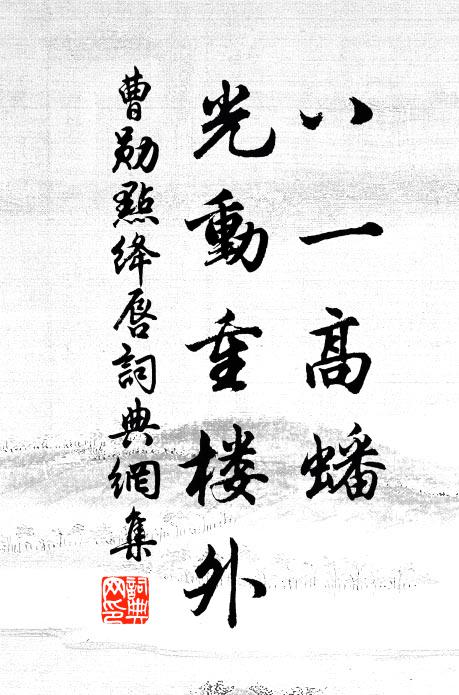 八一高蟠
光動重楼外
曹勛點绛唇詞典網集
詞典